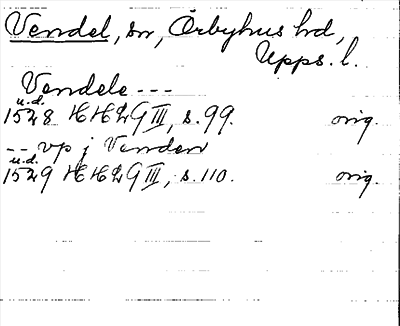 Vendel, sn, Örbyhus hd,
Upps. l.
Vendele ---
u.d.
1528 HH2G III, s. 99. orig.
-- vp j Venden
u.d.
1529 HH2G III, s. 110. orig.